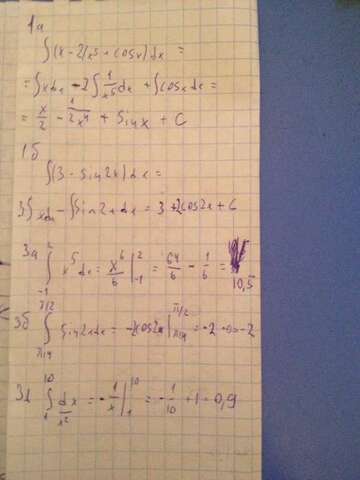 1а
∫(x - 2/x⁵ + cosx)dx =
= ∫xdx - 2∫1/x⁵ dx + ∫cosxdx =
= x/2 - 1/2x⁴ + Sinx + C
1б
∫(3 - Sin2x)dx =
3∫xdx - ∫Sin2xdx = 3 + 2cos2x + C
3а ∫₋₁² x⁵dx = x⁶/6 |₋₁² = 64/6 - 1/6 = 10,5
3б ∫π/4^π/2 Sin2xdx = -2cos2x |π/4^π/2 = -2
3д ∫₁¹⁰ dx/x² = -1/x |₁¹⁰ = -1/10 + 1 = 0,9